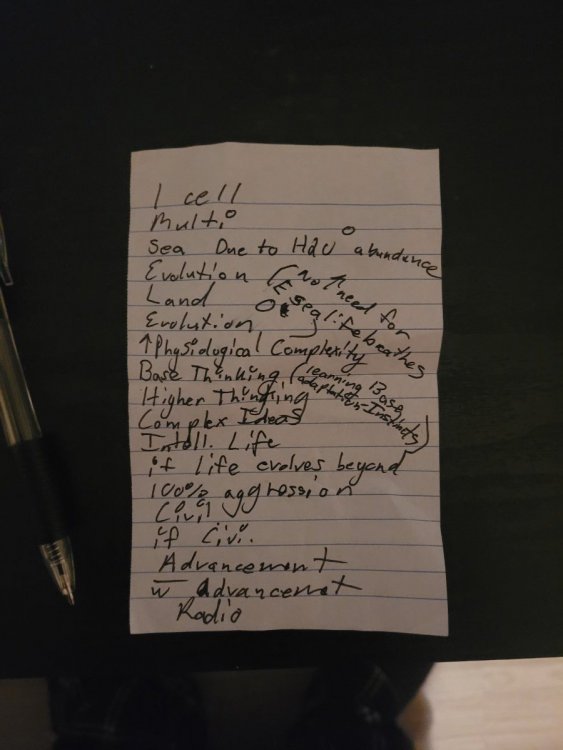 1 cell
Multi
Sea Due to H2O abundance
Evolution
Land
Evolution
(No ↑ need for
E sea life breathes
O
↑ Physiological Complexity
Base Thinking (learning Base,
adaptation-Instincts)
Higher Thinging
Complex Ideas
Intell. Life
if Life evolves beyond
100% aggression
Civil
if Civi.
Advancement
w advancemet
Radio